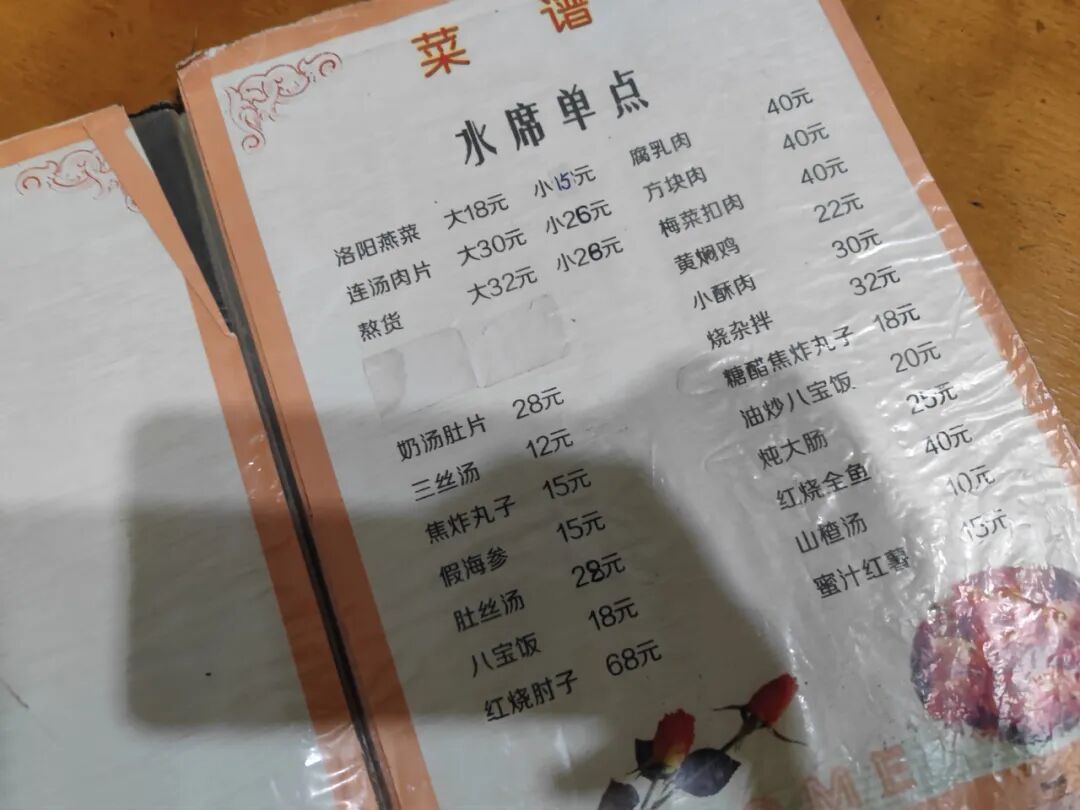 菜谱
水席单点
洛阳燕菜 大18元 小15元
连汤肉片 大30元 小26元
熬货 大32元 小28元
奶汤肚片 28元
三丝汤 12元
焦炸丸子 15元
假海参 15元
肚丝汤 28元
八宝饭 18元
红烧肘子 68元
腐乳肉 40元
方块肉 40元
梅菜扣肉 40元
黄焖鸡 22元
小酥肉 30元
烧杂拌 32元
糖醋焦炸丸子 18元
油炒八宝饭 20元
炖大肠 25元
红烧全鱼 40元
山楂汤 10元
蜜汁红薯 15元